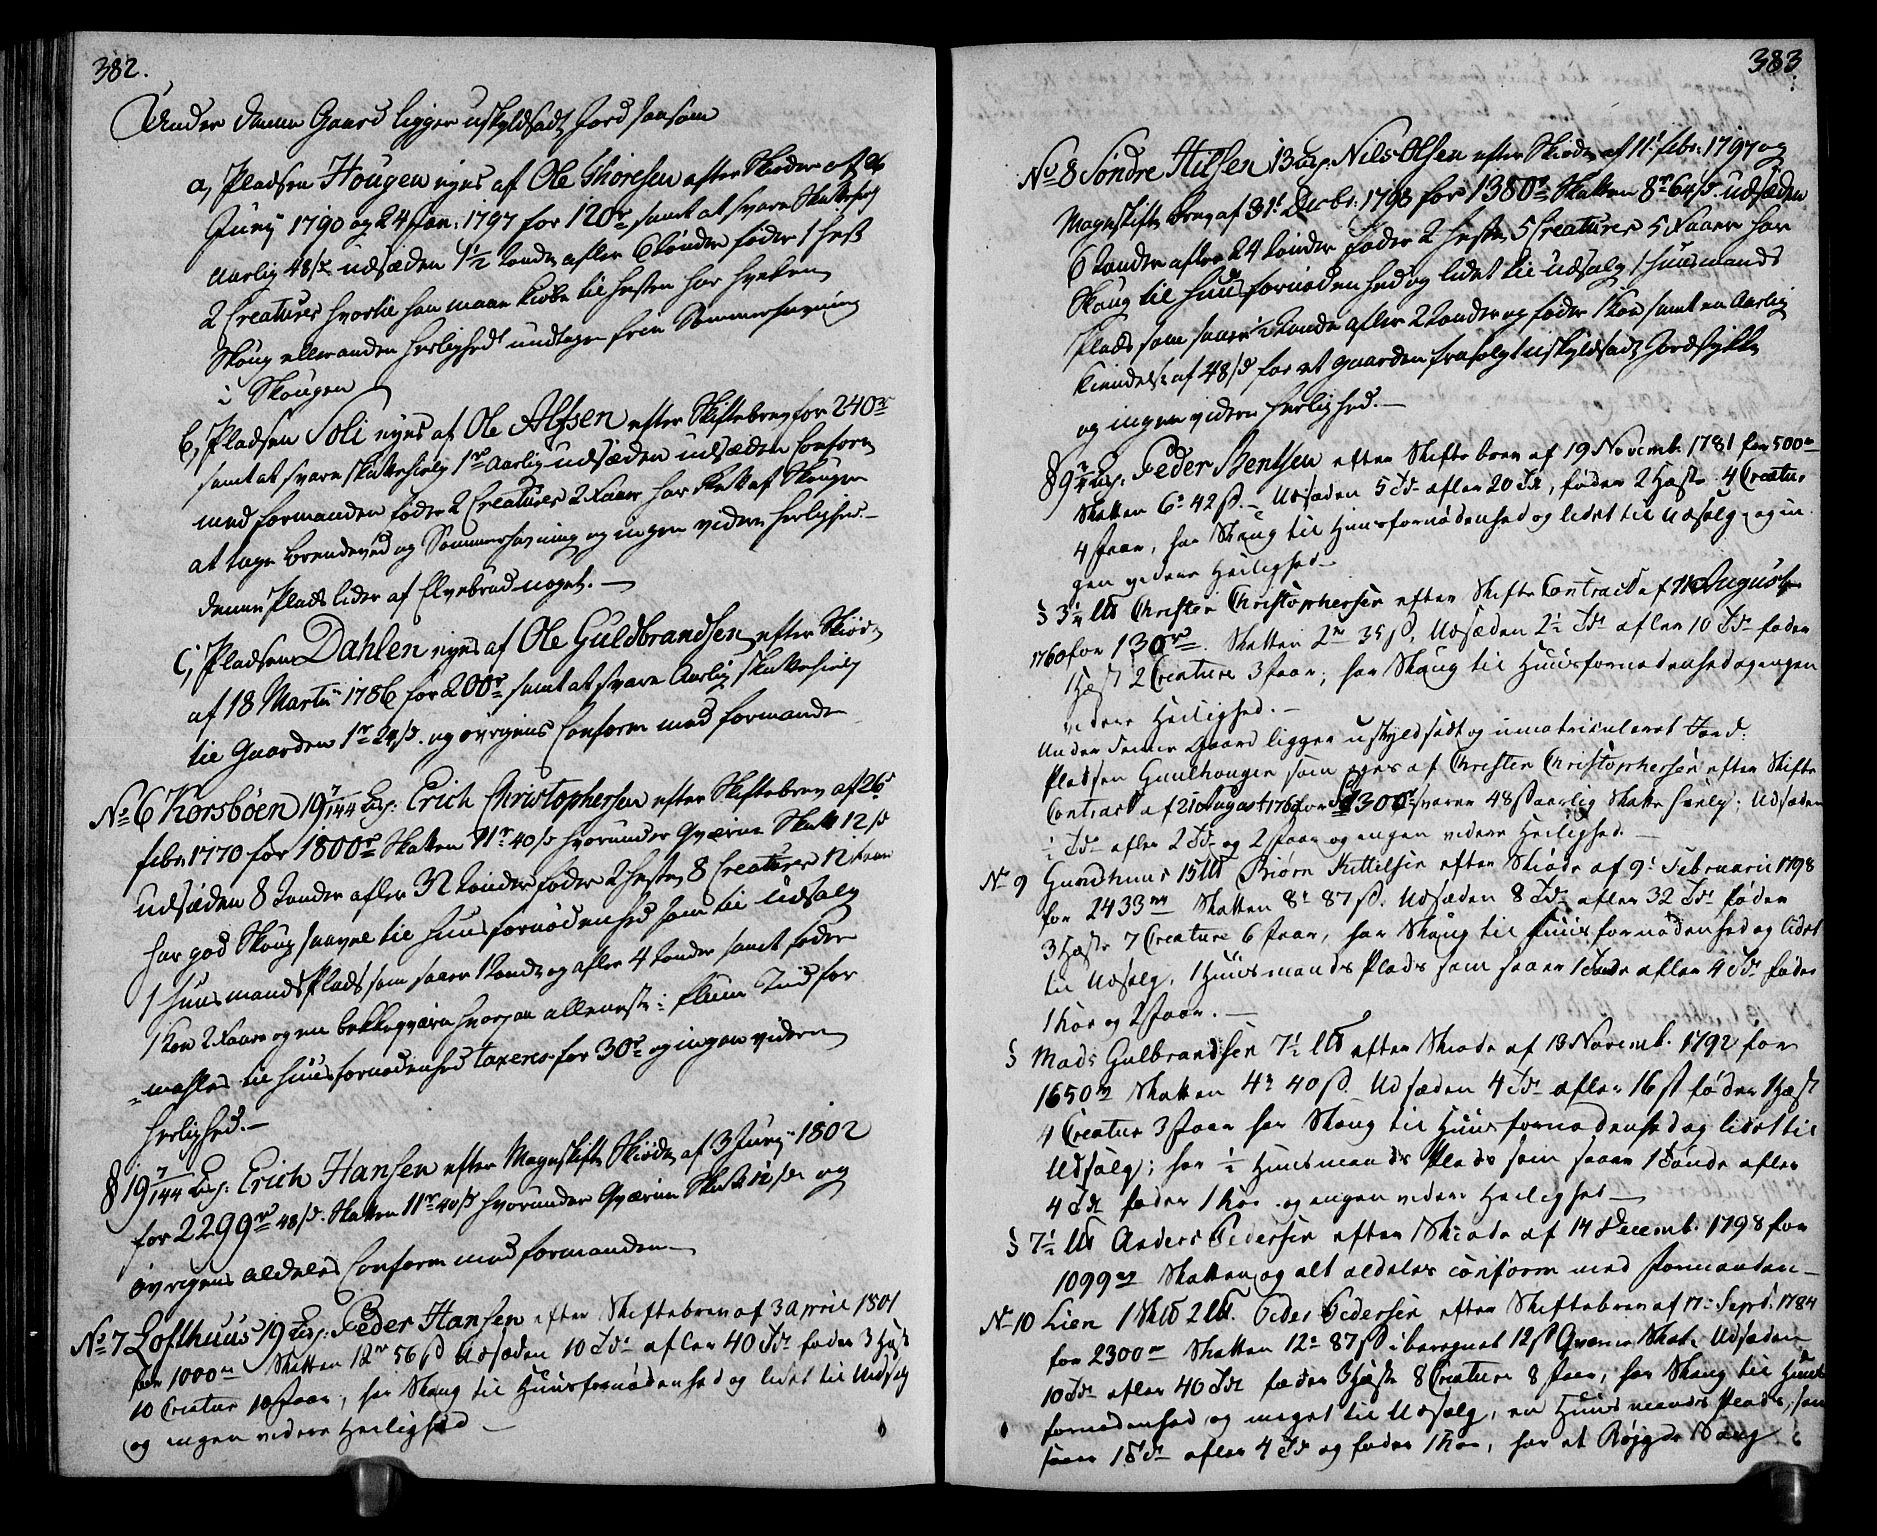 382.
Under denne Gaard ligger uskyldsadt Jord saasom
a, Pladsen Hougen eyes af Ole Thoresen efter Skiøder af 26
Junij 1790 og 24 Jan: 1797 for 120r samt at svare Skattehielp
Aarlig 48 s. udsæden 1½ Tønde afler 6 Tønder føder 1 Hest
2 Creature hvortil han maae kiøbe til Hesten har hverken
Skoug eller anden Herlighedt undtagen frie Sommerhavning
i Skougen
b, Pladsen Soli eyes af Ole Alfsen efter Skiftebrev for 240r
samt at svare Skattehielp 1r Aarlig udsæden udsæden Conform
med formanden føder 2 Creature 2 Faar har Ret af Skougen
at tage brendeved og Sommerhavning og ingen videre Herlighed.—
denne Plads lider af Elvebrud noget.—
c, Pladsen Dahlen eyes af Ole Guldbrandsen efter Skiøde
af 18 Martii 1786 for 200r samt at svare Aarlig Skattehielp
til Gaarden 1r 24 s. og øvrigens Conform med formanden
No 6 Korsbøen 19 7/144 Lisp: Erich Christophersen efter Skiftebrev af 26de
febr: 1770 for 1800r Skatten 11r 40 s hvorunder Qværne Skatt 12 s
udsæden 8 Tønder afler 32 Tønder føder 2 Heste 8 Creature 12 Faar
har god Skoug saavel til Huusfornødenhed som til Udsalg
1 Huusmands Plads som saaer 1 Tønde og afler 4 Tønder samt føder
1 Koe 2 Faare og en bekkeqværn hvorpaa alleneste i flum Tid for
-mahles til Huusfornødenhed taxeres for 30r og ingen videre
Herlighed.—
§ 19 7/144 Lisp: Erich Hansen efter Mageskifte Skiøde af 3 Junij 1802
for 2299r 48 s. Skatten 11r 40 s hvorunder Qværne Skatt 12 s og
øvrigens aldeles Conform med formanden
No 7 Lofthuus 19 Lisp: Peder Hansen efter Skiftebrev af 3 April 1801
for 1000r Skatten 12r 56 s Udsæden 10 Tdr afler 40 Tdr føder 3 Heste
10 Creatur 10 Faar, har Skoug til Huusfornødenhed og lidet til Udsalg
og ingen videre Herlighed —
383
No 8 Søndre Hilsen 13 Lisp: Nils Olsen efter Skiøde af 11t febr: 1797 og
Mageskifte brev af 31t Decbr: 1798 for 1380r Skatten 8r 64 s. udsæden
6 Tønder afler 24 Tønder føder 2 Heste 5 Creaturer 5 Faar har
Skoug til Huusfornødenhed og lidet til Udsalg 1 Huusmands
Plads som saaer ½ Tønde afler 2 Tønder og føder 1 Koe samt en Aarlig
Kiendelse af 48 s for et Gaarden frasolgt uskyldsadt Jordstykke
og ingen videre Herlighed.—
§ 9½ Lisp: Peder Bentsen efter Skiftebrev af 19 Novemb: 1781 for 500r
Skatten 6r 42 s.— Udsæden 5 Tdr afler 20 Tdr, føder 2 Heste 4 Creatur
4 Faar, har Skoug til Huusfornødenhed og lidet til Udsalg og in-
gen videre Herlighed—
§ 3½ lb Christen Christophersen efter Skifte Contract af 21 August
1760 for 130r. Skatten 2r 35 s, Udsæden 2½ Tdr afler 10 Tdr føder
1 Hest 2 Creature 3 Faar, har Skoug til Huusfornødenhed og ingen
videre Herlighed.—
Under denne Gaard ligger uskyldsadt og umatriculeret Jord:
Pladsen Gunlhougen som eyes af Christen Christophersen efter Skifte
Contract af 21 August 1760 for 1300r svarer 48 s aarlig Skatte hielp; Udsæden
½ Tdr afler 2 Tdr og 2 Faar og ingen videre Herlighed.—
No 9 Gundhuus 15 lb Biørn Kittilsen efter Skiøde af 9de Februarii 1798
for 2433r Skatten 8r 87 s. Udsæden 8 Tdr afler 32 Tdr føder
3 Heste 7 Creature 6 Faar, har Skoug til Huusfornødenhed og lidet
til Udsalg, 1 Huusmands Plads som saaer 1 Tønde afler 4 Tdr føder
1 Koe og 2 Faar.—
§ Mads Gulbrandsen 7½ lb efter Skiøde af 13 Novemb: 1792 for
1650r Skatten 4r 40 s. Udsæden 4 Tdr afler 16 st føder 1 Hest
4 Creatur 3 Faar har Skoug til Huusfornødenhed og lidet til
Udsalg; har ½ Huusmands Plads som saaer 1 Tønde afler
4 Tdr føder 1 Koe og ingen videre Herlighed—
§ 7½ lb Anders Pedersen efter Skiøde af 14 Decemb: 1798 for
1099r Skatten og alt aldeles conform med Formanden—
No 10 Lien 1 Skb 2 lb. Peder Pedersen efter Skiftebrev af 17de Sept: 1784
for 2300r Skatten 12r 87 s iberegnet 12 s Qværne Skat. Udsæden
10 Tdr afler 40 Tdr føder 3 Heste 8 Creature 8 Faar, har Skoug til Huus
fornødenhed og meget til Udsalg, en Huusmands Plads, som
saaer 1 Tdr afler 4 Tdr og føder 1 Koe, har et Røjgde Skoug